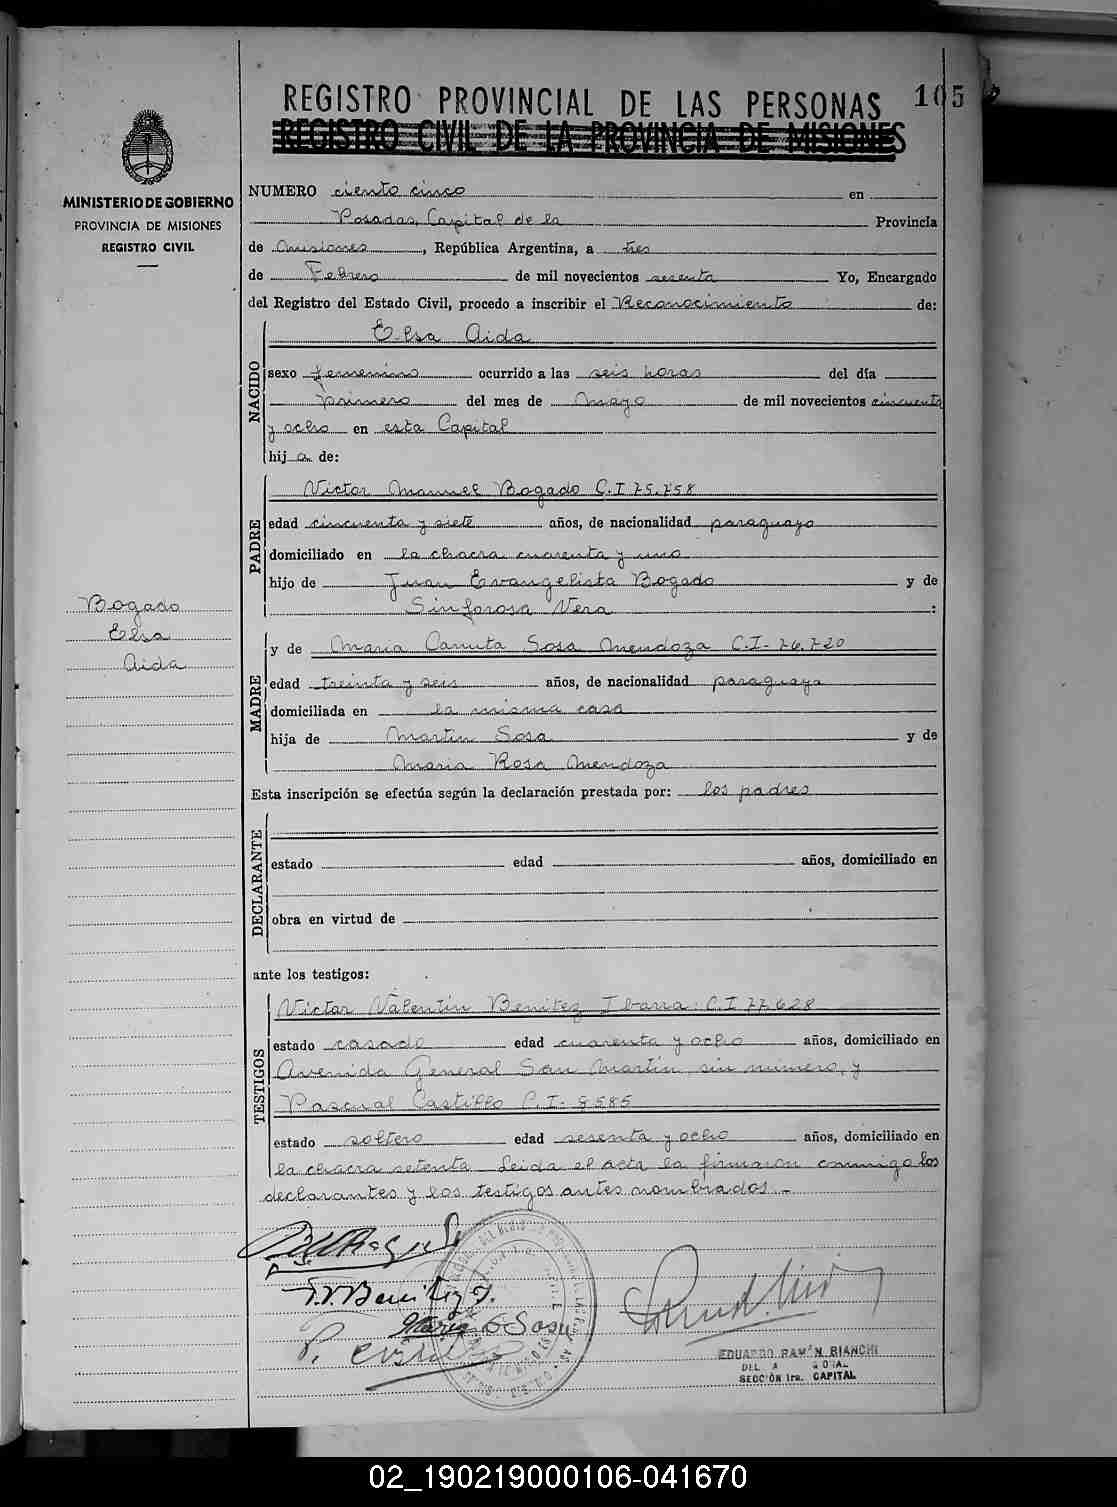 REGISTRO PROVINCIAL DE LAS PERSONAS 105
REGISTRO CIVIL DE LA PROVINCIA DE MISIONES
MINISTERIO DE GOBIERNO
PROVINCIA DE MISIONES
REGISTRO CIVIL
NUMERO ciento cinco en
Posadas, Capital de la Provincia
de Misiones, República Argentina, a tres
de Febrero de mil novecientos sesenta Yo, Encargado
del Registro del Estado Civil, procedo a inscribir el Reconocimiento de:
NACIDO
Elsa Aida
sexo femenino ocurrido a las seis horas del día
primero del mes de Mayo de mil novecientos cincuenta
y ocho en esta Capital
hij a de:
PADRE
Victor Manuel Bogado C.I 75.758
edad cincuenta y siete años, de nacionalidad paraguayo
domiciliado en la chacra cuarenta y uno
hijo de Juan Evangelista Bogado y de
Sinforosa Vera :
Bogado
Elsa
Aida
MADRE
y de Maria Canuta Sosa Mendoza C.I- 76.720
edad treinta y seis años, de nacionalidad paraguaya
domiciliada en la misma casa
hija de Martin Sosa y de
Maria Rosa Mendoza
Esta inscripción se efectúa según la declaración prestada por: los padres
DECLARANTE
estado edad años, domiciliado en
obra en virtud de
ante los testigos:
TESTIGOS
Victor Valentín Benitez Ibarra: C.I 77.628
estado casado edad cuarenta y ocho años, domiciliado en
Avenida General San Martín, sin número, y
Pascual Castillo C.I- 8585
estado soltero edad sesenta y ocho años, domiciliado en
la chacra setenta. Leida el acta la firmaron conmigo los
declarantes y los testigos antes nombrados.-
V.V. Benitez I.
Maria C Sosa
EDUARDO RAMÓN BIANCHI
SECCIÓN 1ra. CAPITAL
02_190219000106-041670